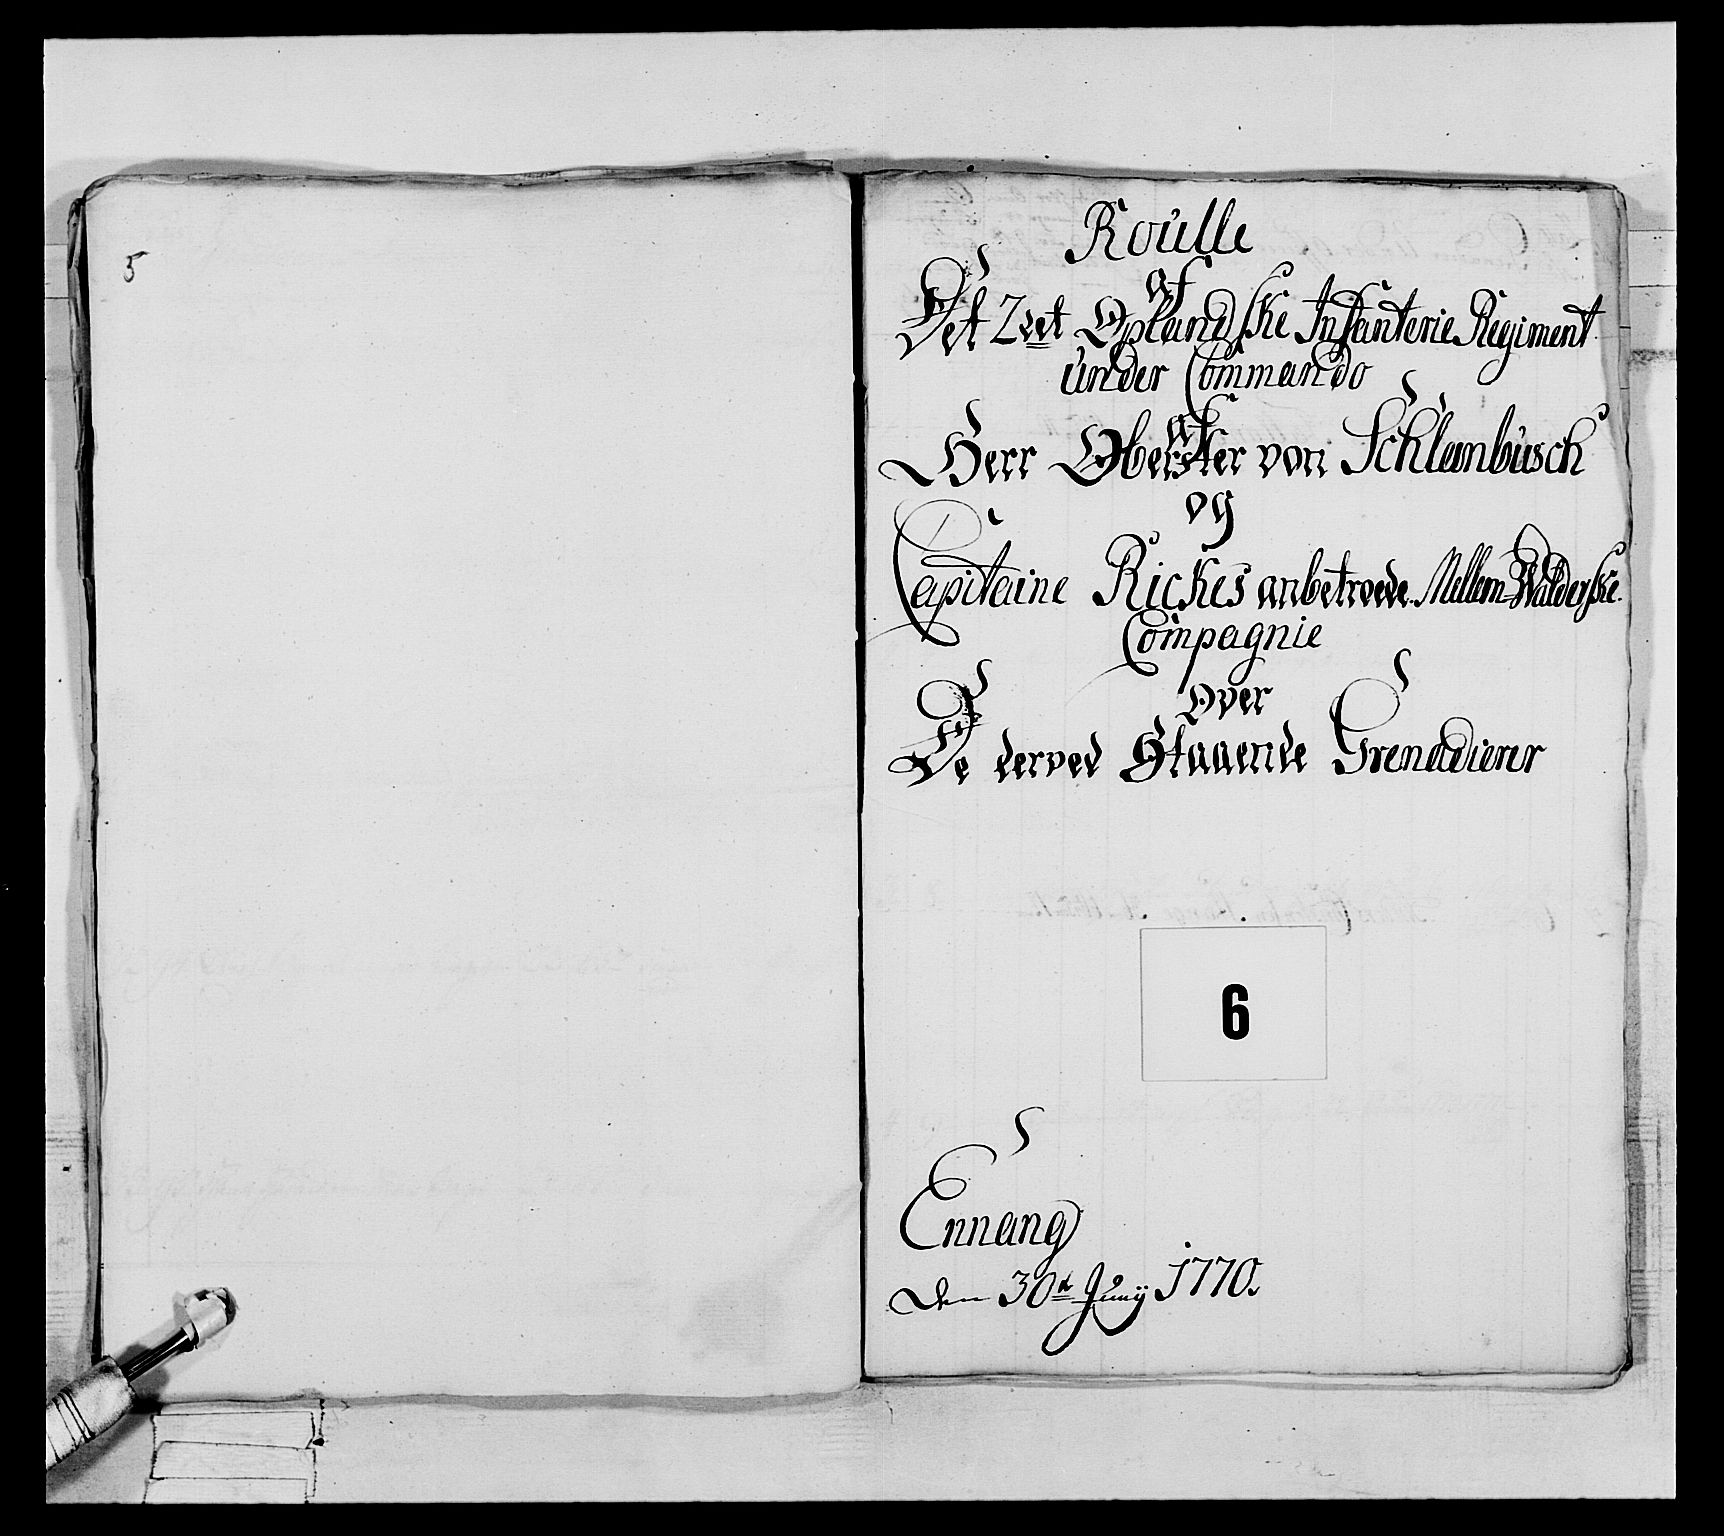 5
Roulle
af
Det 2det Oplandske Infanterie Regiment
under Commando
af
Herr Oberster von Schlambusch
og
Capitaine Rickes anbetroede Mellem Walderske
Compagnie
over
De derved Staaende Grenadierer
6
Ennang
Den 30t Junij 1770.